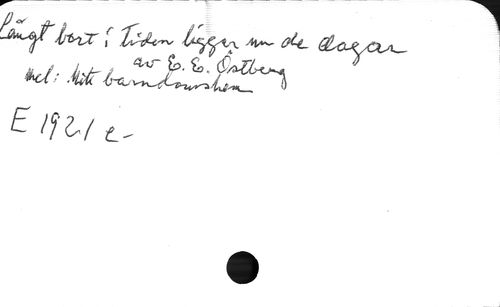 Långt bort i tiden ligger nu de dagar
av E. E. Östberg
mel: Mitt barndomshem
E 1921 e-